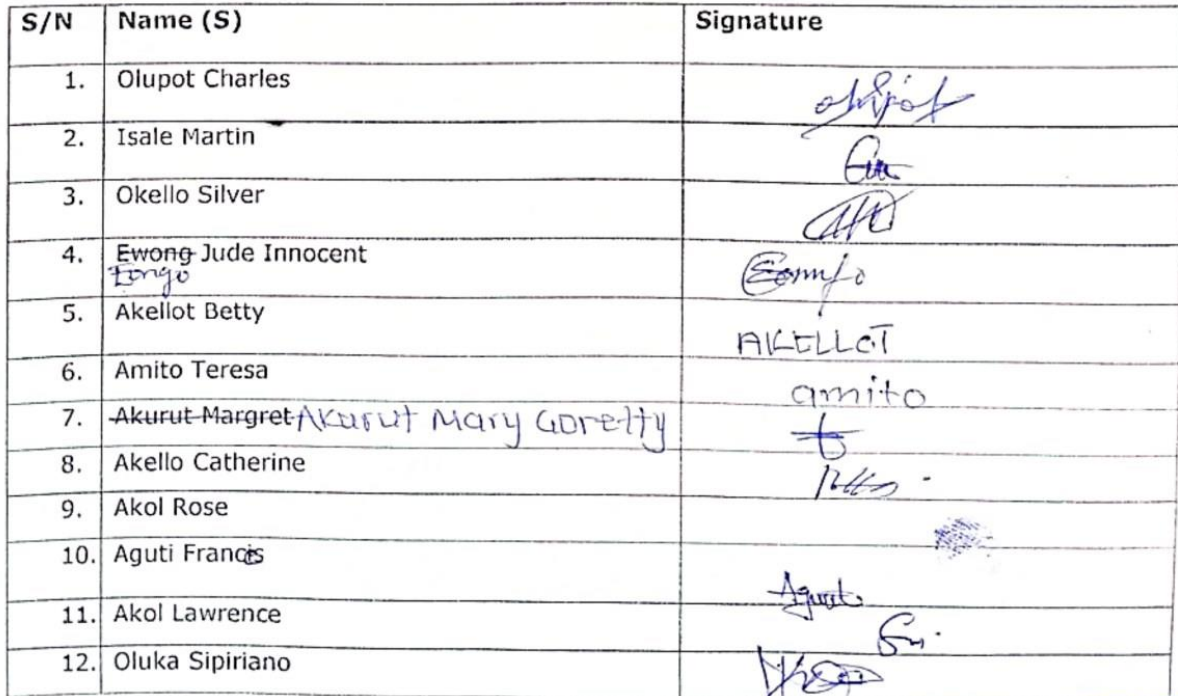 S/N Name (S) Signature
1. Olupot Charles
olupot
2. Isale Martin
3. Okello Silver
4. Ewong Jude Innocent
Eongo
5. Akellot Betty
AKELLOT
6. Amito Teresa
amito
7. Akurut Margret Akurut Mary Goretty
8. Akello Catherine
9. Akol Rose
10. Aguti Francis
Aguti
11. Akol Lawrence
12. Oluka Sipiriano